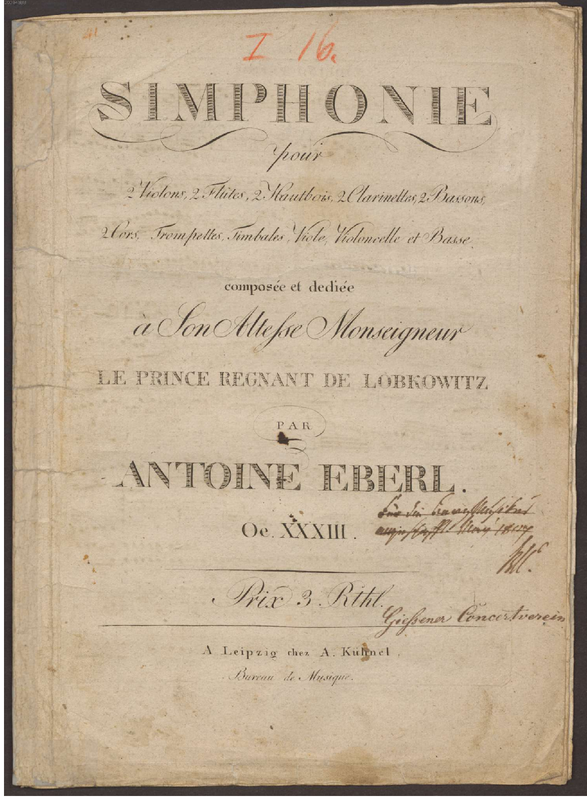 I 16.
SIMPHONIE
pour
2 Violons, 2 Flûtes, 2 Hautbois, 2 Clarinettes, 2 Bassons,
2 Cors, Trompettes, Timbales, Viole, Violoncelle et Basse.
composée et dediée
à Son Altesse Monseigneur
LE PRINCE REGNANT DE LOBKOWITZ
PAR
ANTOINE EBERL.
Oe. XXXIII.
Prix 3 Rthl.
Gießener Concertverein
A Leipzig chez A. Kühnel.
Bureau de Musique.